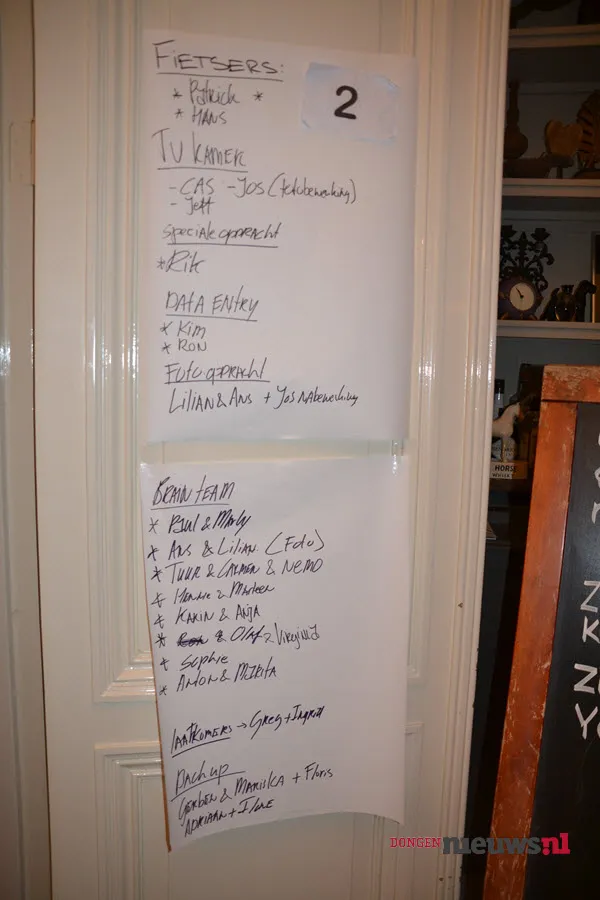 FIETSERS:
* Patrick *
* HANS
2
TV KAMER
- CAS - JOS (fotobewerking)
- Jeff
speciale opdracht
* Rik
DATA ENTRY
* Kim
* RON
FOTO opdracht
LILIAN & ANS + Jos NAbewerking
BRAIN TEAM
* Paul & Marly
* ANS & LILIAN (FOTO)
* TUUR & CARMEN & NEMO
* Hennie & Marleen
* KARIN & ANJA
* & Olaf & Virginia
* Sophie
* ANTON & MARITA
laatkomers → Greg + Ingrid
Back up
GERBEN & MARISKA + Floris
ADRIAAN +
HORSE
DONGENnieuws.nl
Z
K
Z
Y